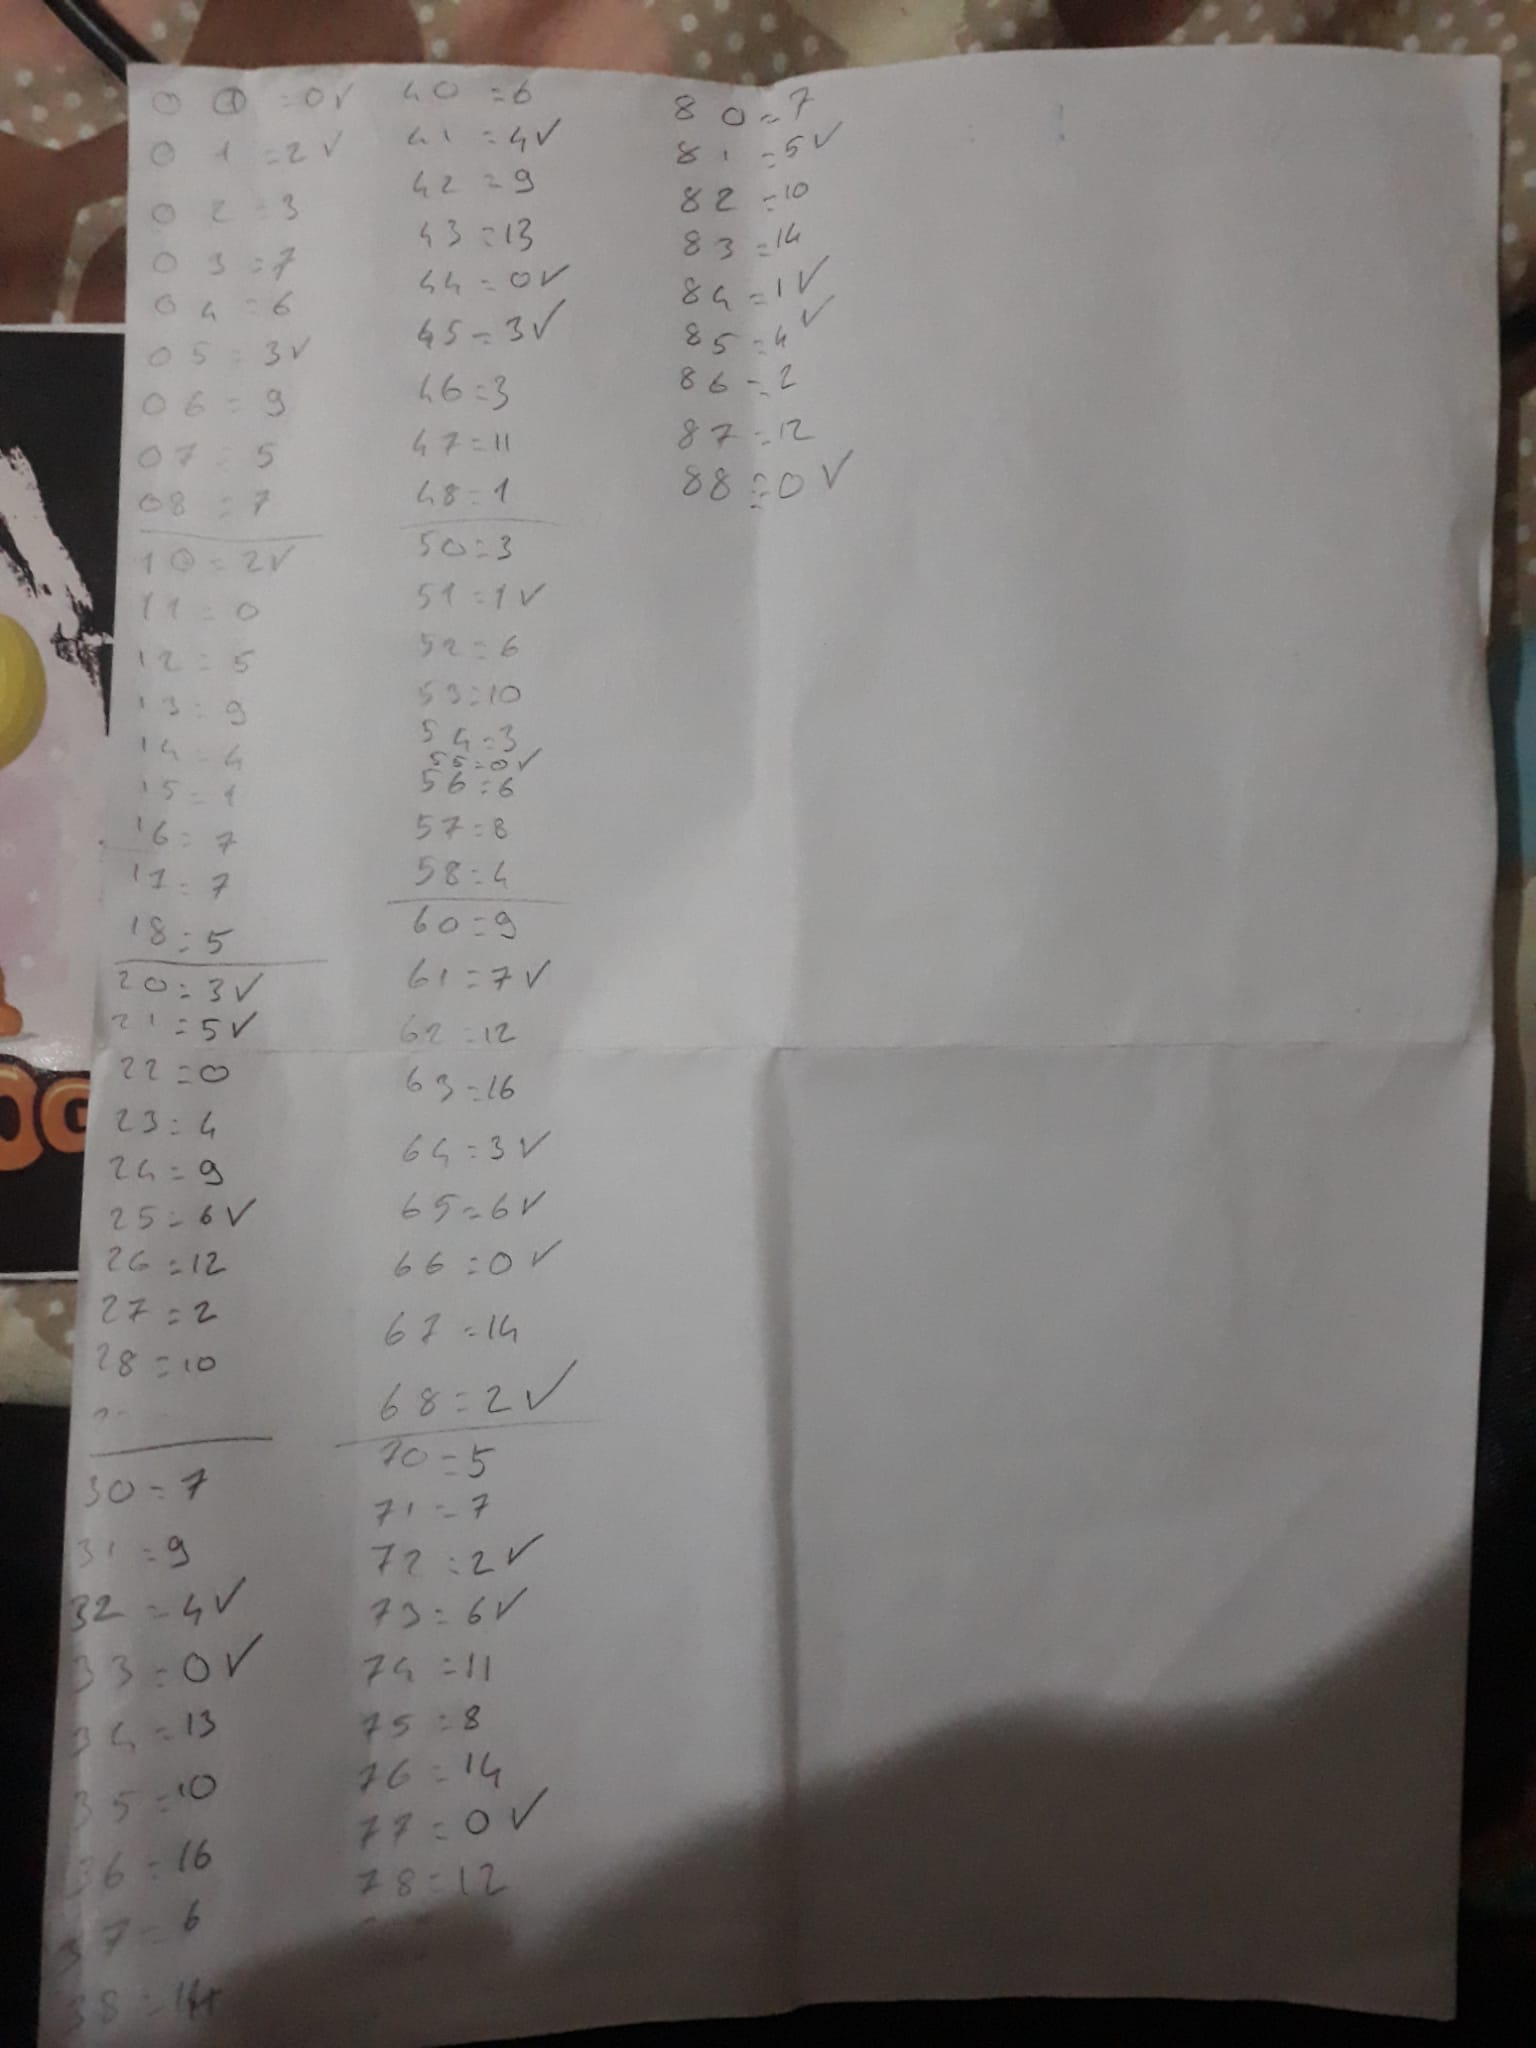 0 0 = 0 ✓
0 1 = 2 ✓
0 2 = 3
0 3 = 7
0 4 = 6
0 5 = 3 ✓
0 6 = 9
0 7 = 5
0 8 = 7
1 0 = 2 ✓
1 1 = 0
1 2 = 5
1 3 = 9
1 4 = 4
1 5 = 1
1 6 = 7
1 7 = 7
1 8 = 5
2 0 = 3 ✓
2 1 = 5 ✓
2 2 = 0
2 3 = 4
2 4 = 9
2 5 = 6 ✓
2 6 = 12
2 7 = 2
2 8 = 10
3 0 = 7
3 1 = 9
3 2 = 4 ✓
3 3 = 0 ✓
3 4 = 13
3 5 = 10
3 6 = 16
3 7 = 6
3 8 = 14
4 0 = 6
4 1 = 4 ✓
4 2 = 9
4 3 = 13
4 4 = 0 ✓
4 5 = 3 ✓
4 6 = 3
4 7 = 11
4 8 = 1
5 0 = 3
5 1 = 1 ✓
5 2 = 6
5 3 = 10
5 4 = 3
5 5 = 0 ✓
5 6 = 6
5 7 = 8
5 8 = 4
6 0 = 9
6 1 = 7 ✓
6 2 = 12
6 3 = 16
6 4 = 3 ✓
6 5 = 6 ✓
6 6 = 0 ✓
6 7 = 14
6 8 = 2 ✓
7 0 = 5
7 1 = 7
7 2 = 2 ✓
7 3 = 6 ✓
7 4 = 11
7 5 = 8
7 6 = 14
7 7 = 0 ✓
7 8 = 12
8 0 = 7
8 1 = 5 ✓
8 2 = 10
8 3 = 14
8 4 = 1 ✓
8 5 = 4 ✓
8 6 = 2
8 7 = 12
8 8 = 0 ✓
OG